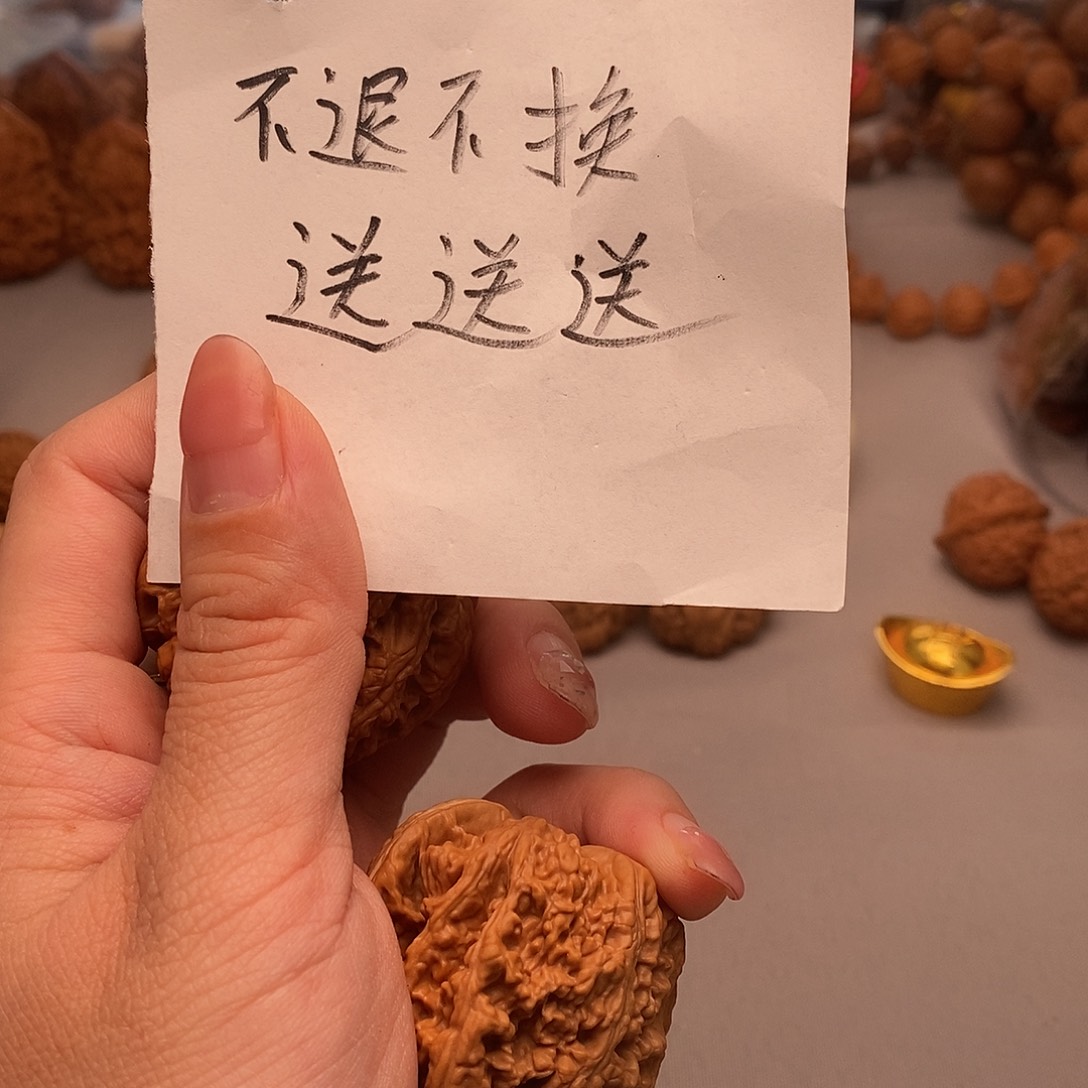 不退不换
送送送